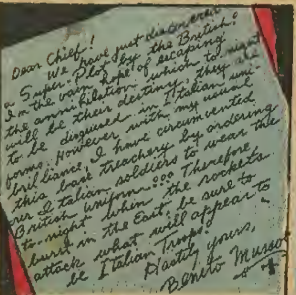 Dear Chief!
We have just discovered
a Super-Plot by the British!
In the vain hope of escaping
the annihilation which to night
will be their destiny, they are
to be disguised in Italian uni-
forms. However with my usual
brilliance, I have circumvented
this base treachery by ordering
Italian soldiers to wear the
British uniform!!! Therefore
to-night when the rockets
burst in the East, be sure to
attack what will appear to
be Italian Troops!
Hastily yours,
Benito Musso